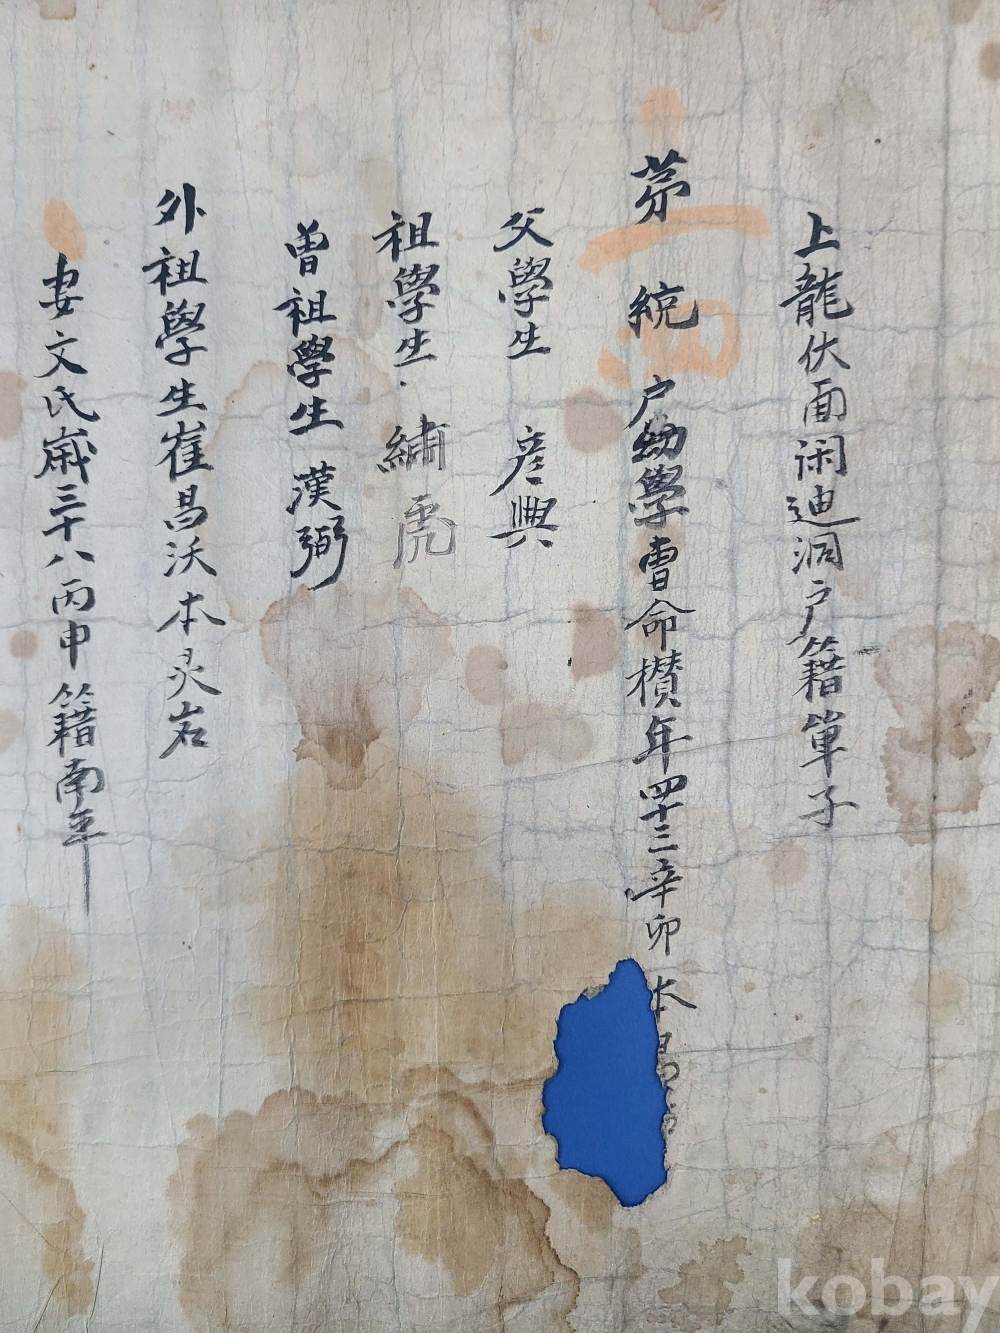 上龍伏面閑迪洞户籍單子
第一統四户幼學曺命攅年四十三辛卯本昌
父學生 彦興
祖學生 繡虎
曾祖學生 漢弼
外祖學生崔昌沃本灵岩
妻文氏歲三十八丙申籍南平
kobay